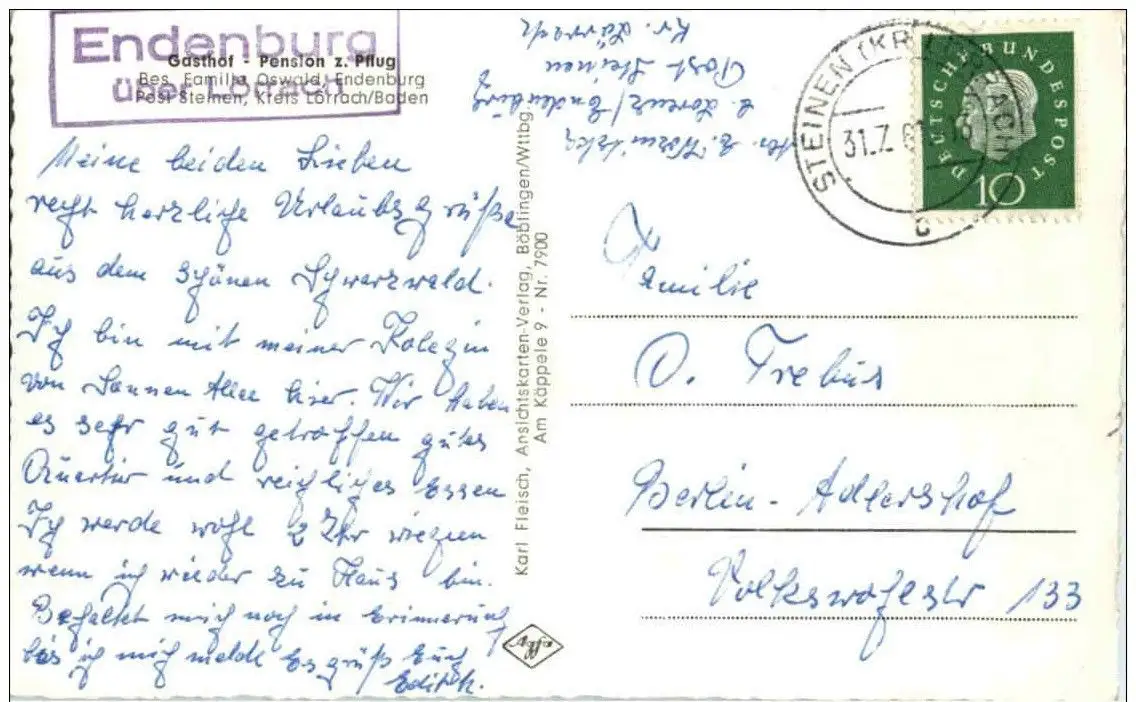 Endenburg
über Lörrach
Gasthof - Pension z. Pflug
Bes. Familie Oswald, Endenburg
Post Steinen, Kreis Lörrach/Baden
Meine beiden Lieben
recht herzliche Urlaubsgrüße
aus dem schönen Schwarzwald.
Ich bin mit meiner Kolegin
von Sonnen Allee hier. Wir haben
es sehr gut getroffen gutes
Quartier und reichliches Essen
Ich werde wohl 2 Ztr wiegen
wenn ich wieder zu Haus bin.
Behaltet mich noch in Erinnerung
bis ich mich melde Es grüßt Euch
Edith.
Karl Fleisch, Ansichtskarten-Verlag, Böblingen/Wttbg.
Am Käppele 9 - Nr. 7900
Agfa
b. Lorenz/Endenburg
Post Steinen
Kr. Lörrach
STEINEN (KR LÖRRACH)
31.7.
c
DEUTSCHE BUNDESPOST
10
Familie
O. Trebus
Berlin-Adlershof
Volkswohlstr 133